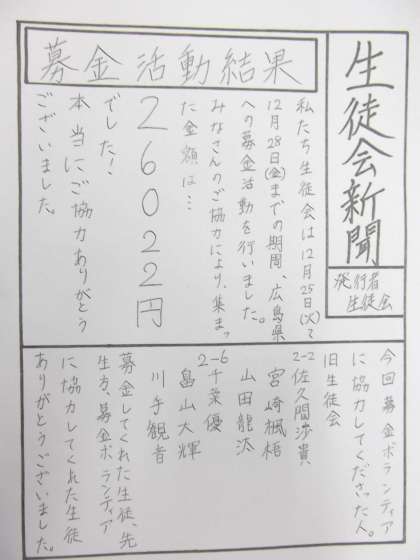 生徒会新聞
発行者
生徒会
募金活動結果
私たち生徒会は12月25日(火)て
12月28日(金)までの期間、広島県
への募金活動を行いました。
みなさんのご協力により、集まっ
た金額は…
26022円
でした！
本当にご協力ありがとう
ございました。
今回募金ボランティア
に協力してくださった人。
旧生徒会
2-2佐久間渉貴
宮崎楓梧
山田龍汰
2-6千葉優
畠山大輝
川手観音
募金してくれた生徒、先
生方、募金ボランティア
に協力してくれた生徒
ありがとうございました。